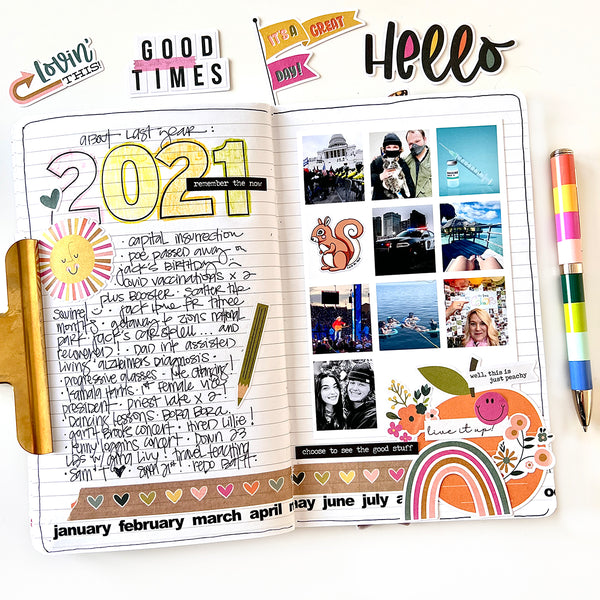 lovin'
THIS!
GOOD
TIMES
IT'S A GREAT
DAY!
Hello
about last year:
2021
remember the now
· capital insurrection
· poe passed away on
jack's birthday ·
covid vaccinations x 2
plus booster · scatter the
squirrel ·
months · getaway to zions national
park · jack's and
recovered! · dad in assisted
living · alzheimers diagnosis ·
· progressive glasses · line dancing!
· female vice
president · priest lake x 2!
Dancing lessons · Bora Bora ·
garth brooks concert · Hired Lillie!
Kenny loggins concert · Down 23
LBS w/ and Livy! travel teaching
Sam
well, this is
just peachy
live it up!
choose to see the good stuff
january february march april may june july a oc